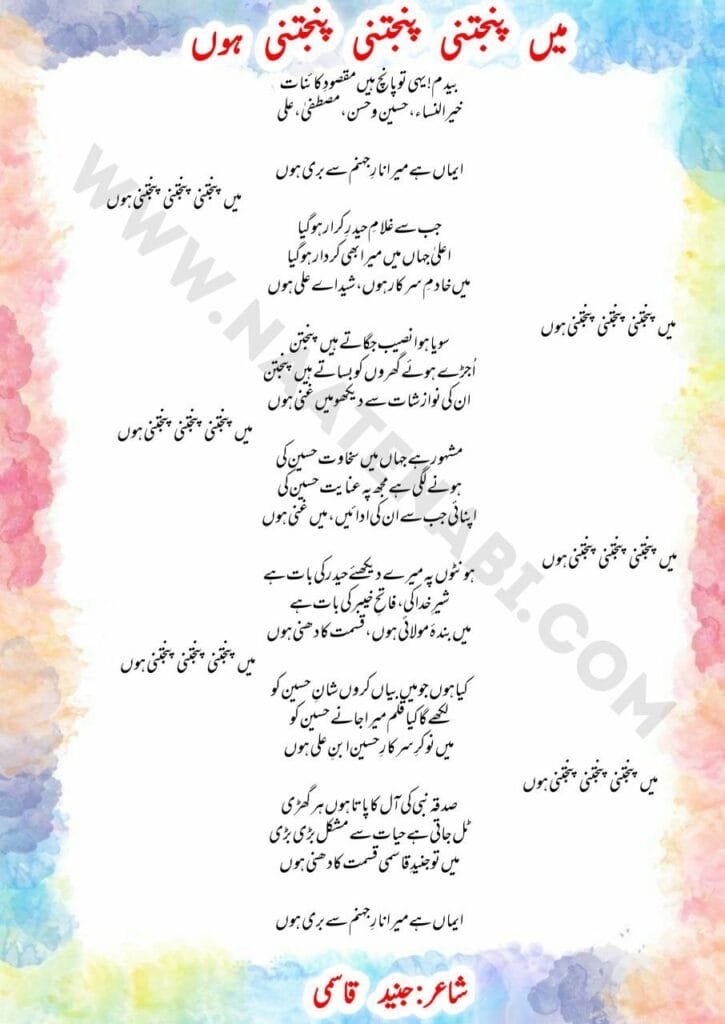 میں پنجتنی پنجتنی پنجتنی ہوں
بیدم! یہی تو پانچ ہیں مقصودِ کائنات
خیر النساء، حسین و حسن، مصطفیٰ، علی
ایماں ہے میرا نارِ جہنم سے بری ہوں
میں پنجتنی پنجتنی پنجتنی ہوں
جب سے غلامِ حیدرِ کرار ہو گیا
اعلیٰ جہاں میں میرا بھی کردار ہو گیا
میں خادمِ سرکار ہوں، شیداے علی ہوں
میں پنجتنی پنجتنی پنجتنی ہوں
سویا ہوا نصیب جگاتے ہیں پنجتن
اُجڑے ہوئے گھروں کو بساتے ہیں پنجتن
ان کی نوازشات سے دیکھو میں غنی ہوں
میں پنجتنی پنجتنی پنجتنی ہوں
مشہور ہے جہاں میں سخاوت حسین کی
ہونے لگی ہے مجھ پہ عنایت حسین کی
اپنائی جب سے ان کی ادائیں، میں غنی ہوں
میں پنجتنی پنجتنی پنجتنی ہوں
ہونٹوں پہ میرے دیکھئے حیدر کی بات ہے
شیرِ خدا کی، فاتحِ خیبر کی بات ہے
میں بندۂ مولائی ہوں، قسمت کا دھنی ہوں
میں پنجتنی پنجتنی پنجتنی ہوں
کیا ہوں جو میں بیاں کروں شانِ حسین کو
لکھے گا کیا قلم میرا جانے حسین کو
میں نوکرِ سرکارِ حسین ابنِ علی ہوں
میں پنجتنی پنجتنی پنجتنی ہوں
صدقہ نبی کی آل کا پاتا ہوں ہر گھڑی
ٹل جاتی ہے حیات سے مشکل بڑی بڑی
میں تو جنیدِ قاسمی قسمت کا دھنی ہوں
ایماں ہے میرا نارِ جہنم سے بری ہوں
شاعر: جنید قاسمی
WWW.NAATENABI.COM